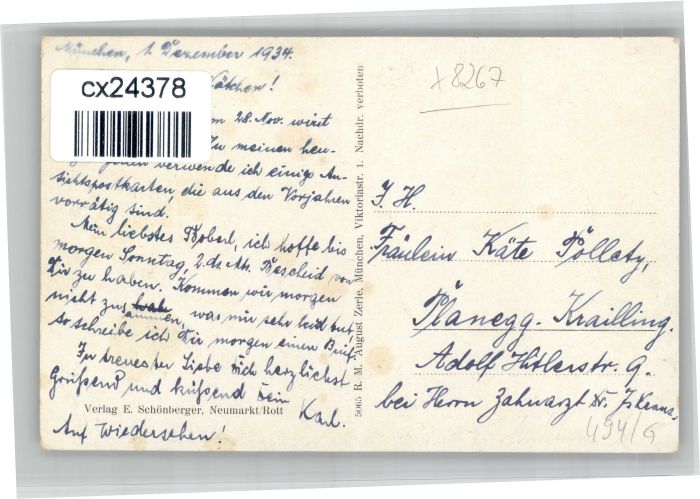 München, 1. Dezember 1934.
cx24378
Kätchen!
28. Nov. wirst
Zu meinen heu-
verwende ich einige An-
sichtspostkarten, die aus den Vorjahren
vorrätig sind.
Mein liebstes Boberl, ich hoffe bis
morgen Sonntag, 2. ds. Mts. Bescheid von
Dir zu haben. Kommen wir morgen
nicht zusammen, was mir sehr leid tut,
so schreibe ich Dir morgen einen Brief.
In treuester Liebe Dich herzlichst
Grüßend und küßend Dein
Karl.
Verlag E. Schönberger, Neumarkt/Rott
Auf Wiedersehen!
5065 R. M. August Zerle, München, Viktoriastr. 1. Nachdr. verboten
x 8267
I. H.
Fräulein Käte Pöllety,
Planegg-Krailling.
Adolf Hitlerstr. 9.
bei Herrn Zahnarzt Dr.
494/G